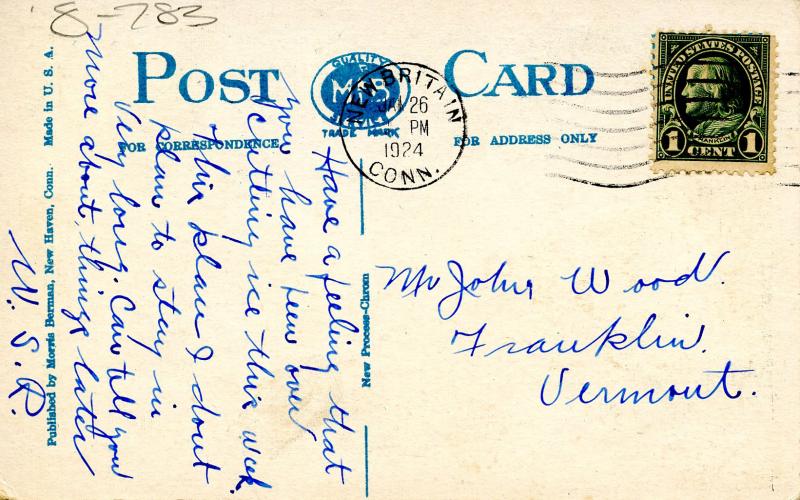 8-783
POST CARD
QUALITY
M B
SERVICE
TRADE MARK
FOR CORRESPONDENCE
FOR ADDRESS ONLY
NEW BRITAIN
JAN 26
PM
1924
CONN.
UNITED STATES POSTAGE
FRANKLIN
1 CENT 1
Have a feeling that
you have been over
cutting ice this week.
this place I dont
plan to stay in
very long. Can tell you
more about things later
W. S. R.
Mr John Wood.
Franklin.
Vermont.
New Process-Chrom
Published by Morris Berman, New Haven, Conn. Made in U. S. A.